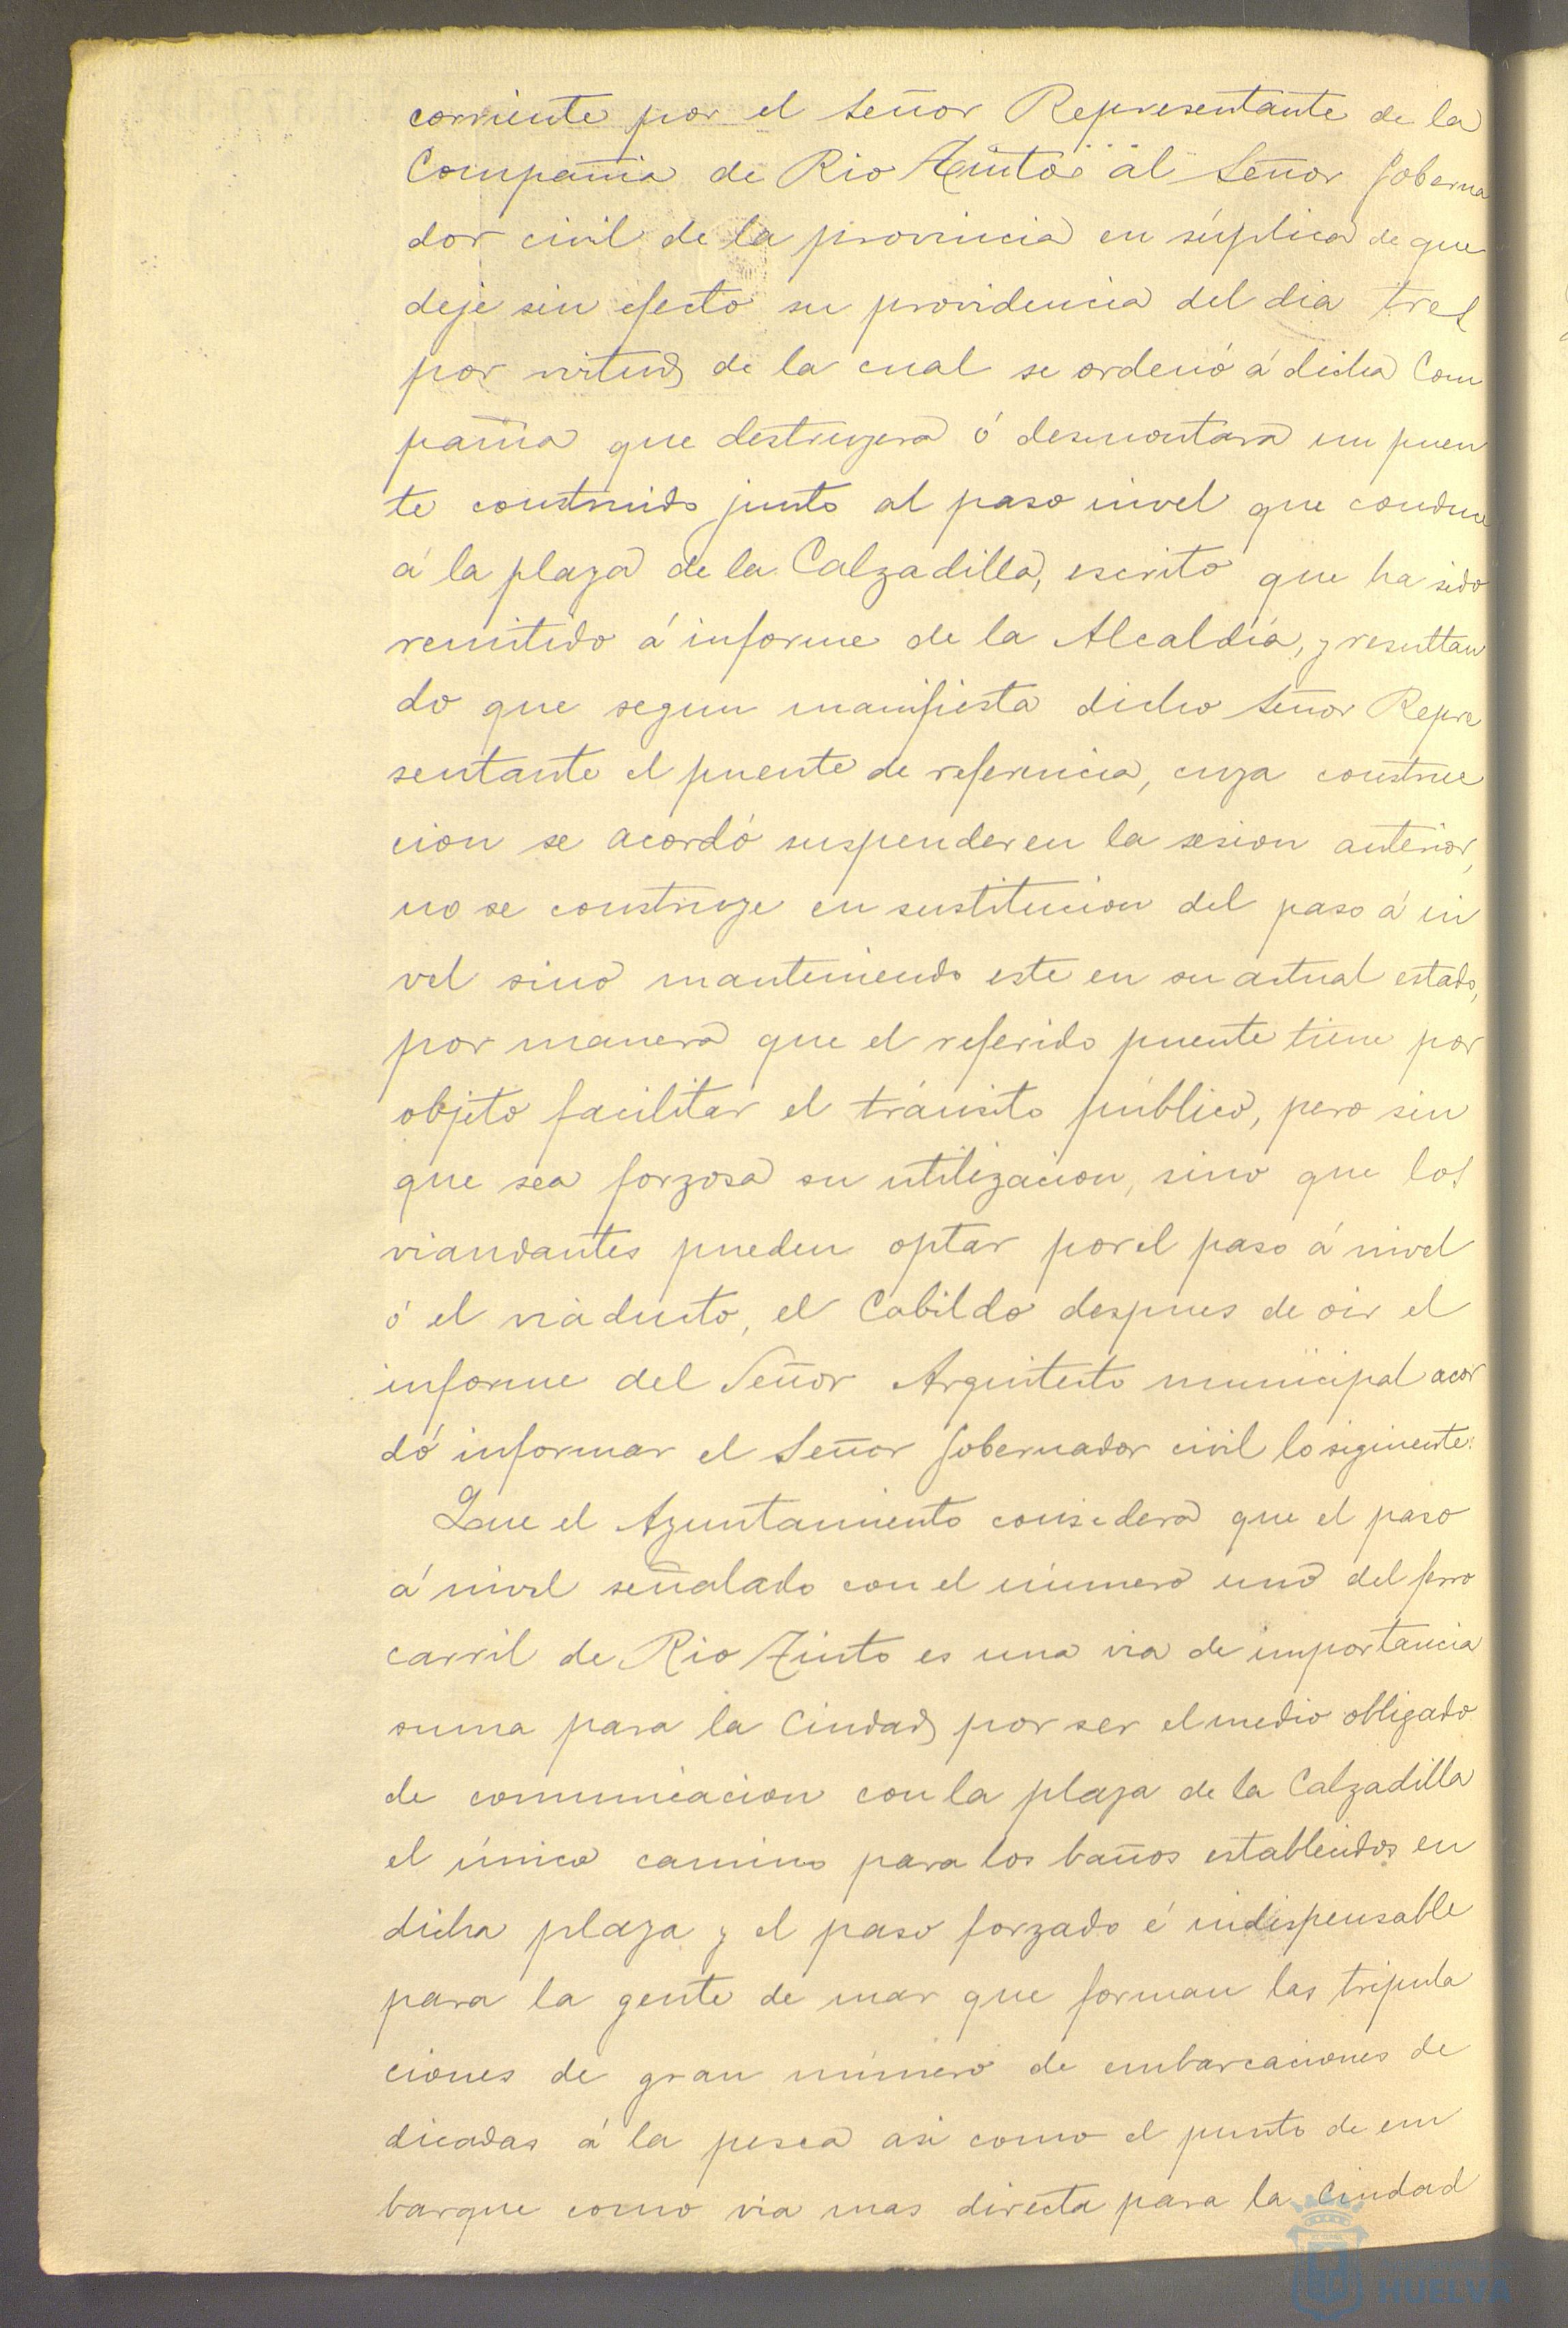 corriente por el Señor Representante de la
Compañia de Rio Tinto al Señor Goberna
dor civil de la provincia en súplica de que
deje sin efecto su providencia del dia tres
por virtud de la cual se ordenó á dicha Com
pañia que destruyera ó desmontara un puen
te construido junto al paso nivel que conduce
á la plaza de la Calzadilla, escrito que ha sido
remitido á informe de la Alcaldía, y resultan
do que segun manifiesta dicho Señor Repre
sentante el puente de referencia, cuya construc
cion se acordó suspender en la sesion anterior,
no se construye en sustitucion del paso á ni
vel sino manteniendo este en su actual estado,
por manera que el referido puente tiene por
objeto facilitar el tránsito público, pero sin
que sea forzosa su utilizacion, sino que los
viandantes pueden optar por el paso á nivel
ó el viaducto, el Cabildo despues de oir el
informe del Señor Arquitecto municipal acor
dó informar el Señor Gobernador civil lo siguiente:
Que el Ayuntamiento considera que el paso
á nivel señalado con el número uno del ferro
carril de Rio Tinto es una via de importancia
suma para la Ciudad por ser el medio obligado
de comunicacion con la plaza de la Calzadilla
el único camino para los baños establecidos en
dicha plaza y el paso forzado é indispensable
para la gente de mar que forman las tripula
ciones de gran número de embarcaciones de
dicadas á la pesca asi como el punto de em
barque como via mas directa para la Ciudad
HUELVA